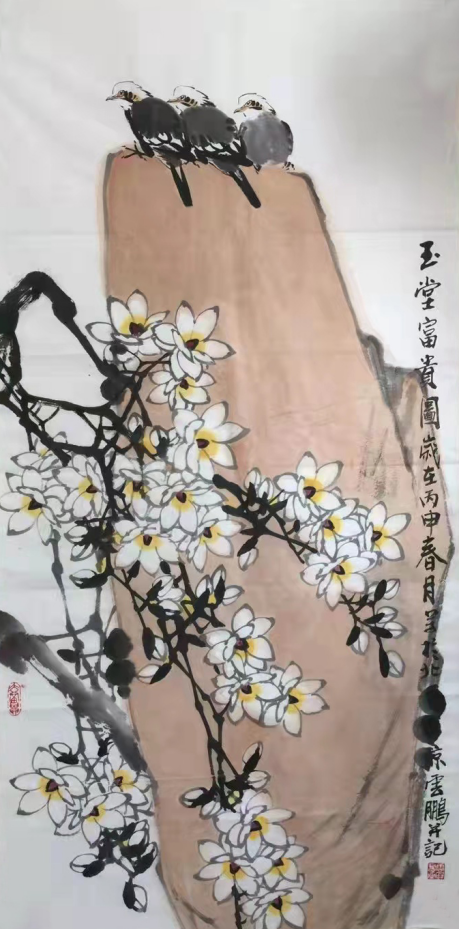 玉堂富貴圖歲在丙申春月写於北京雲鵬并記